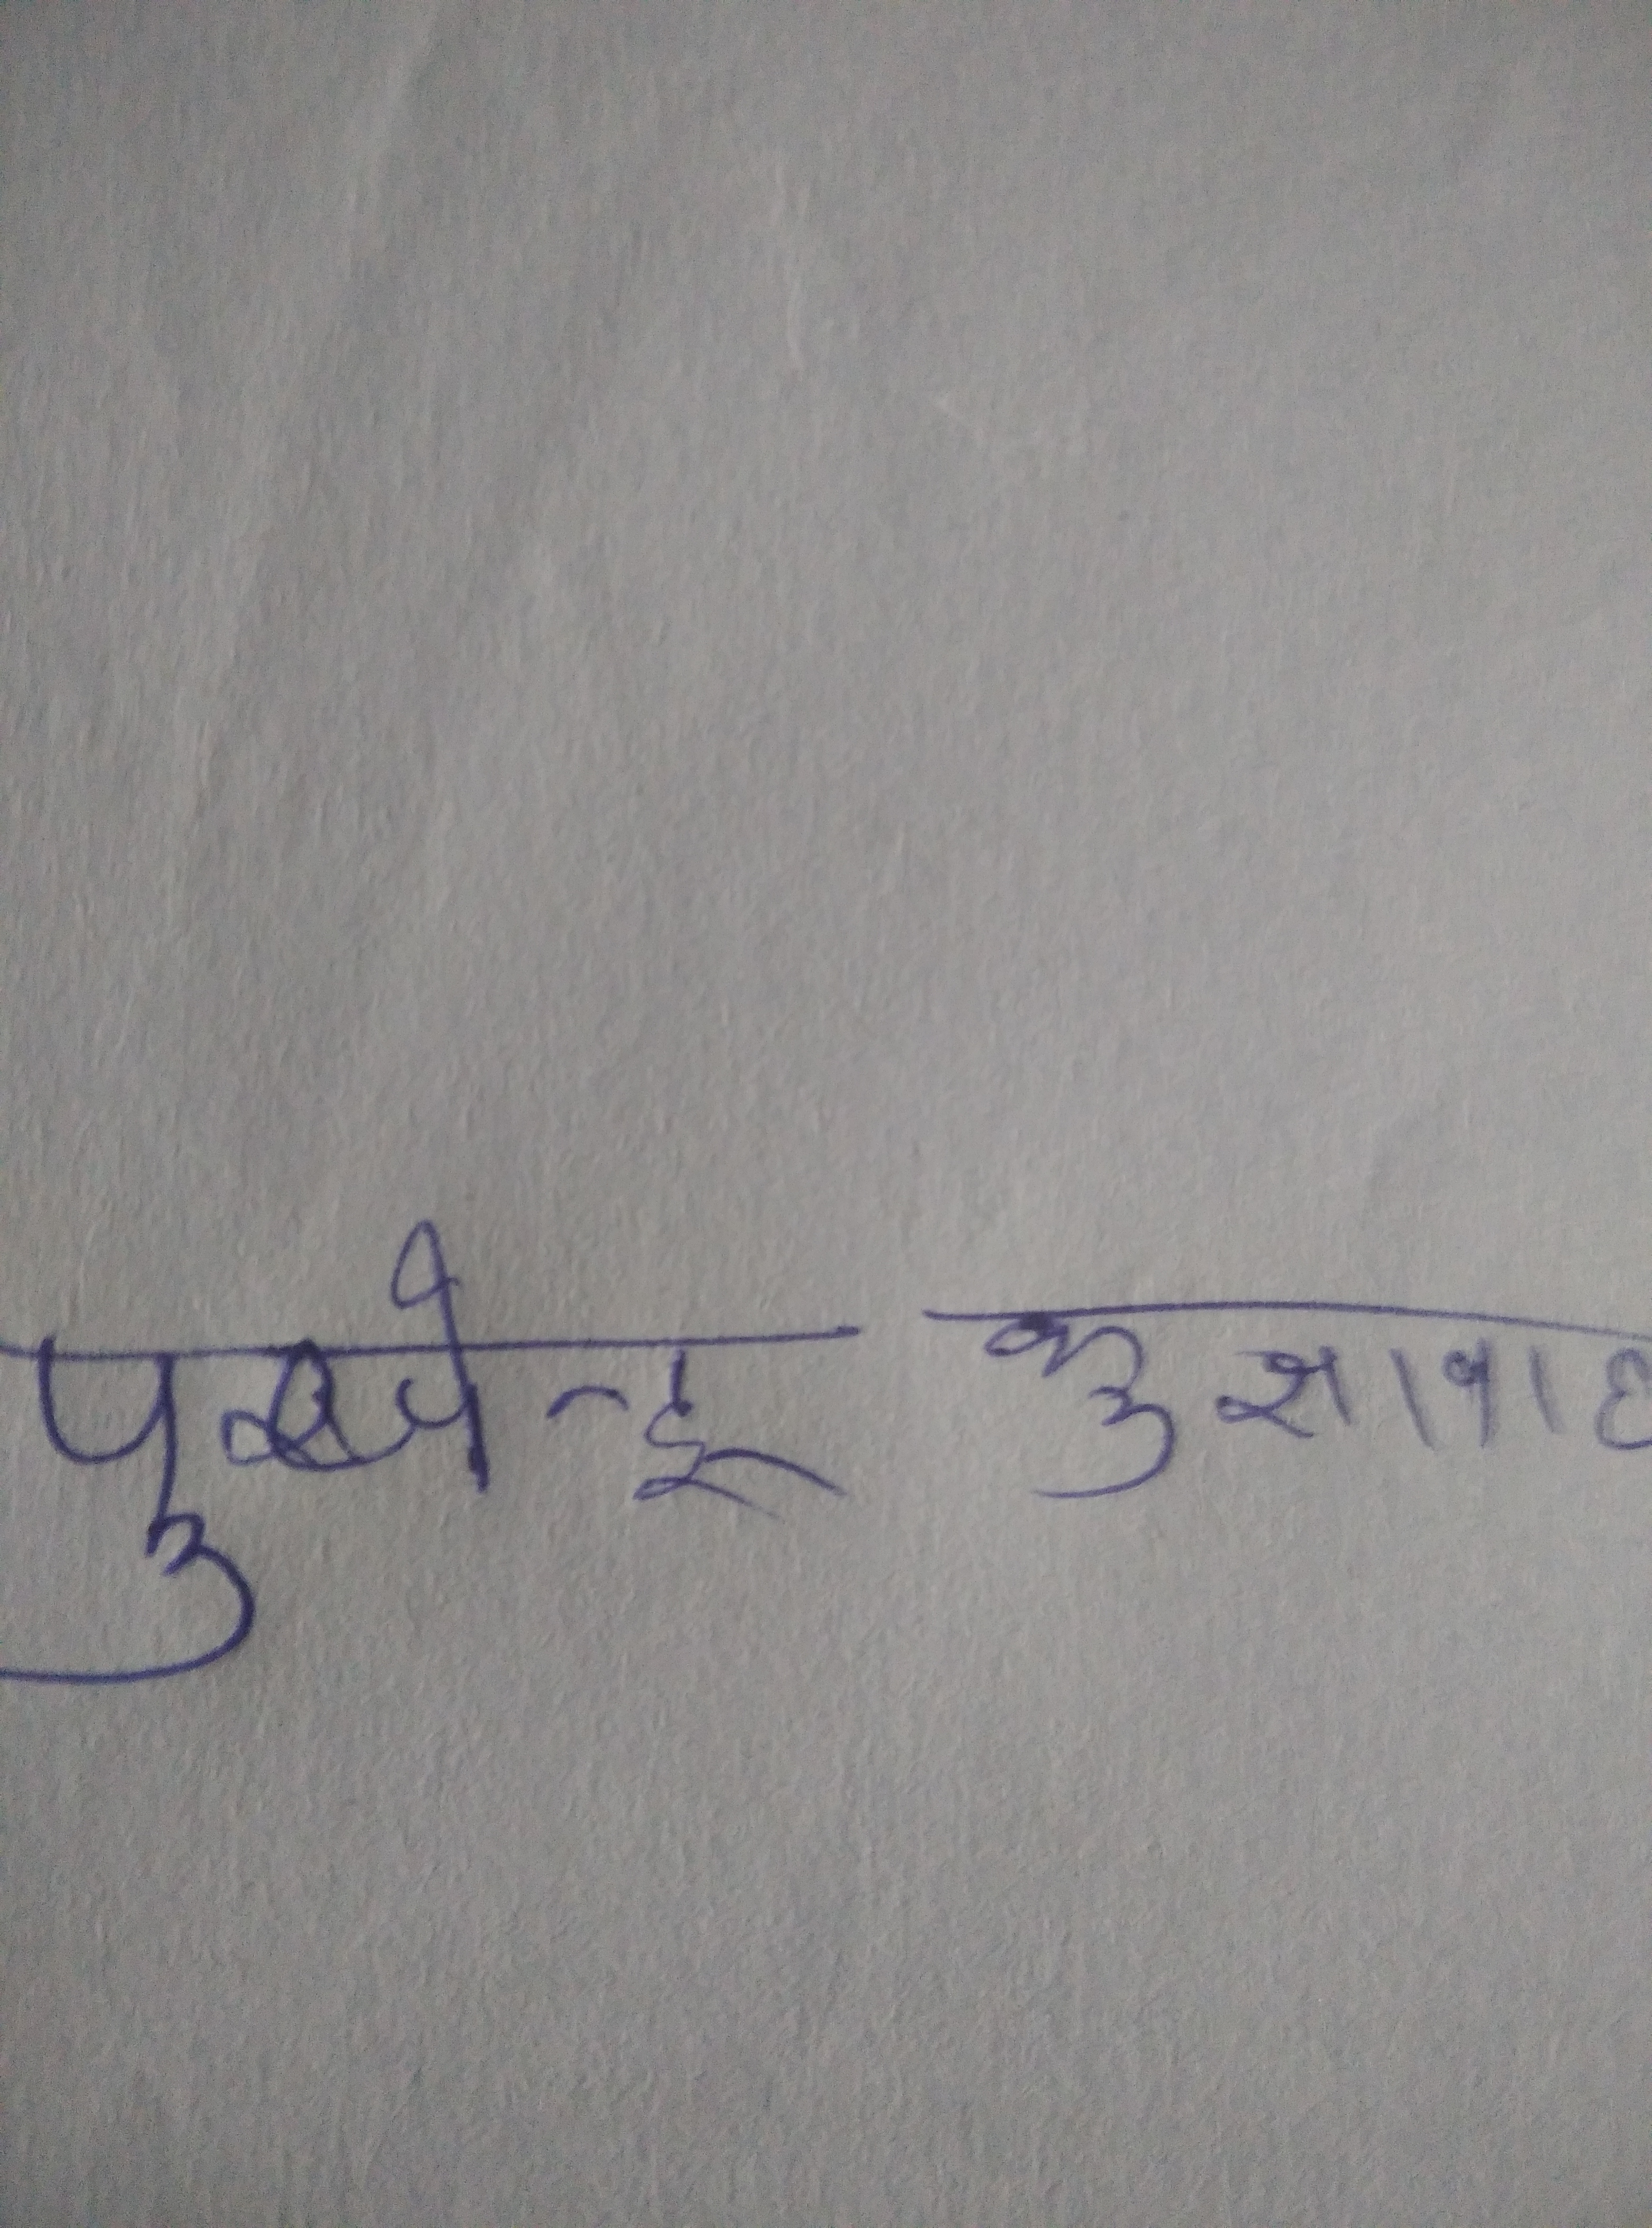 पुस्पेन्द्र कुशवाह